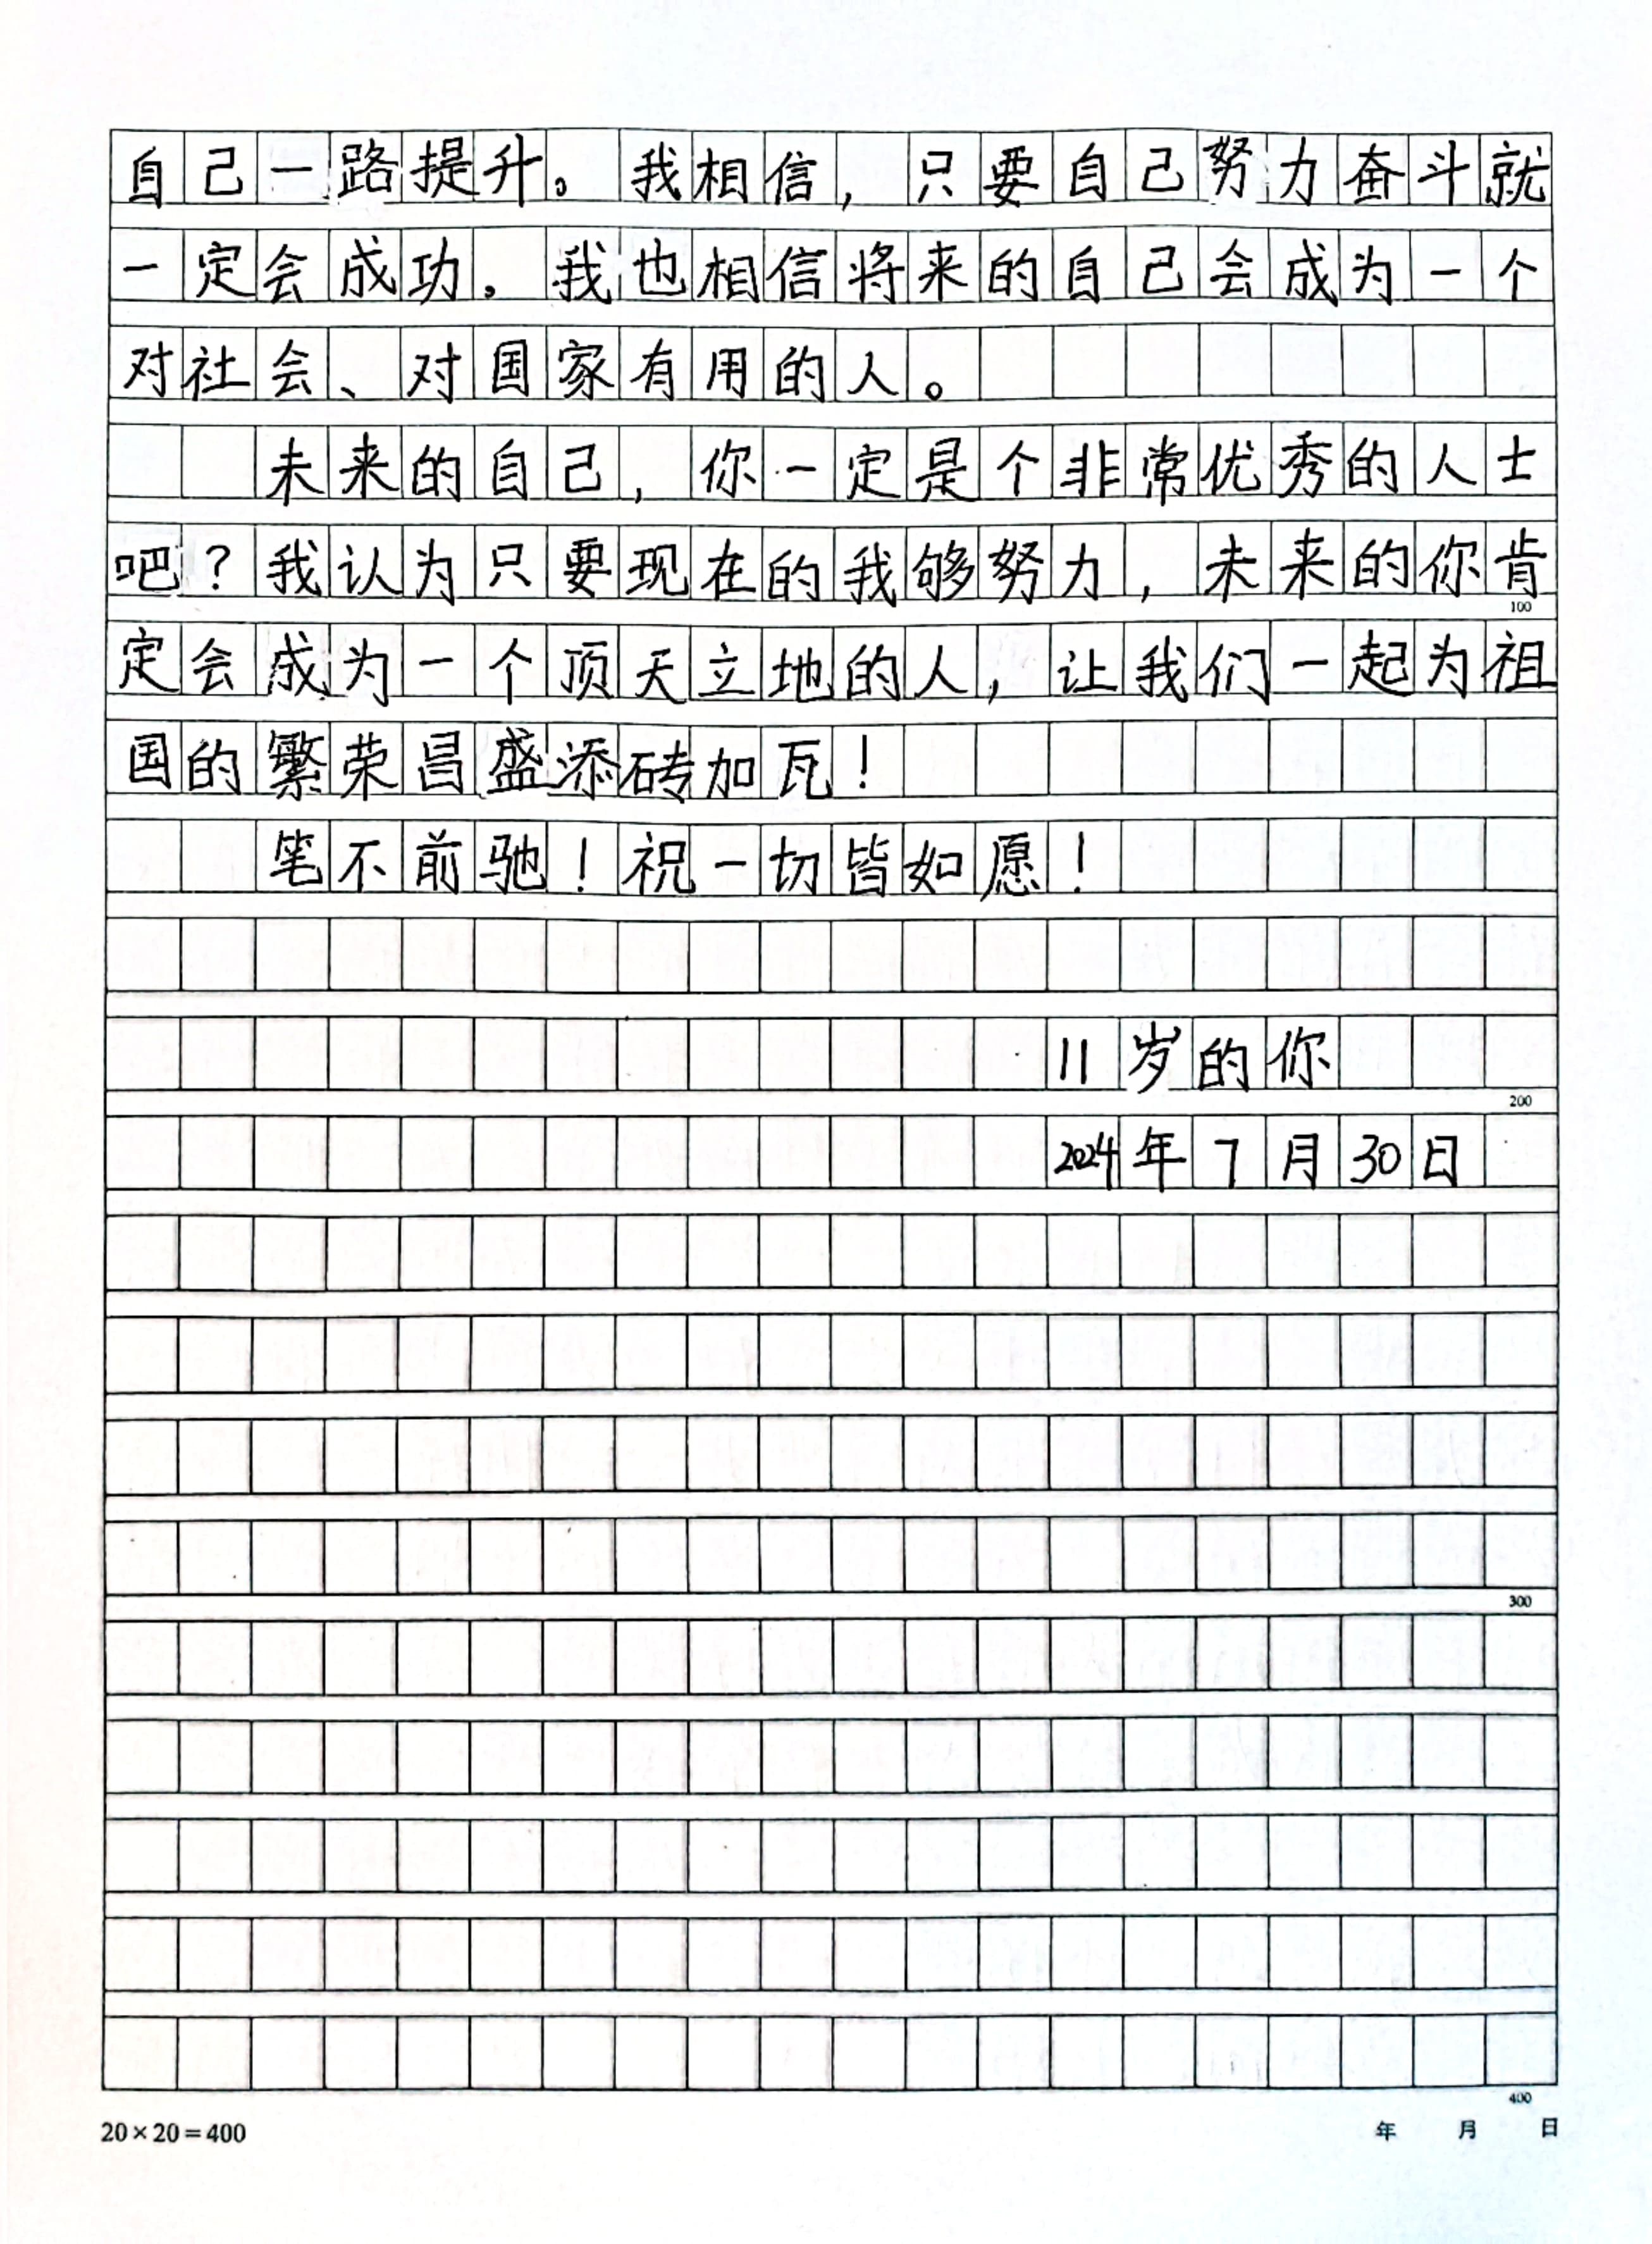 自己一路提升。我相信，只要自己努力奋斗就
一定会成功。我也相信将来的自己会成为一个
对社会、对国家有用的人。
未来的自己，你一定是个非常优秀的人士
吧？我认为只要现在的我够努力，未来的你肯
100
定会成为一个顶天立地的人，让我们一起为祖
国的繁荣昌盛添砖加瓦！
笔不前驰！祝一切皆如愿！
11岁的你
200
2024年7月30日
300
400
20×20=400 年 月 日